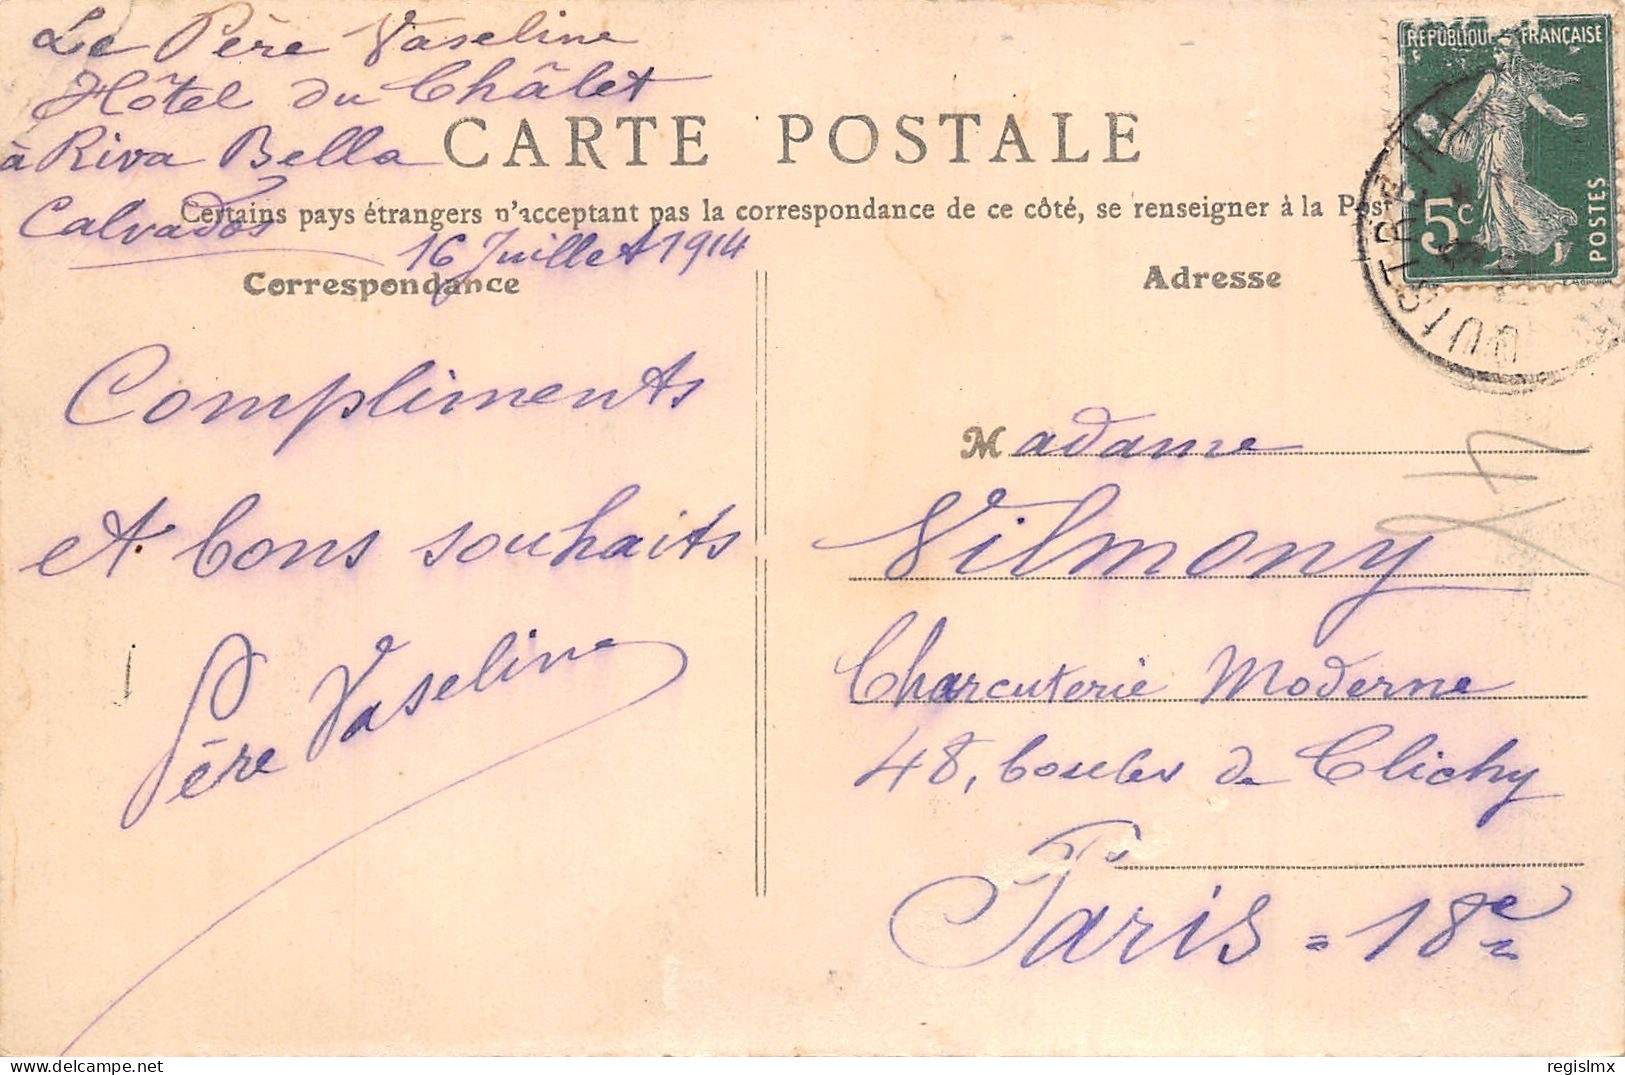 Le Père Vaseline
Hôtel du Châlet
à Riva Bella
Calvados
16 Juillet 1914
CARTE POSTALE
Certains pays étrangers n'acceptant pas la correspondance de ce côté, se renseigner à la Post
Correspondance
Adresse
RÉPUBLIQUE FRANÇAISE
5c
POSTES
OUISTREHAM
Compliments
et bons souhaits
Père Vaseline
Madame
Vilmony
Charcuterie Moderne
48, boulev de Clichy
Paris = 18e
regislmx